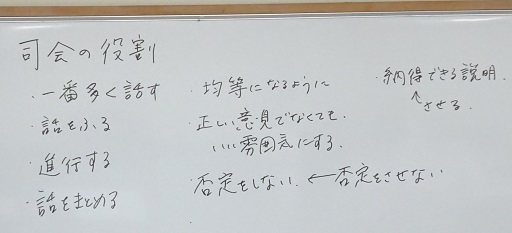 司会の役割
・一番多く話す
・話をふる
・進行する
・話をまとめる
・均等になるように
・正しい意見でなくても
いい雰囲気にする。
・否定をしない ← 否定をさせない
・納得できる説明
↑させる